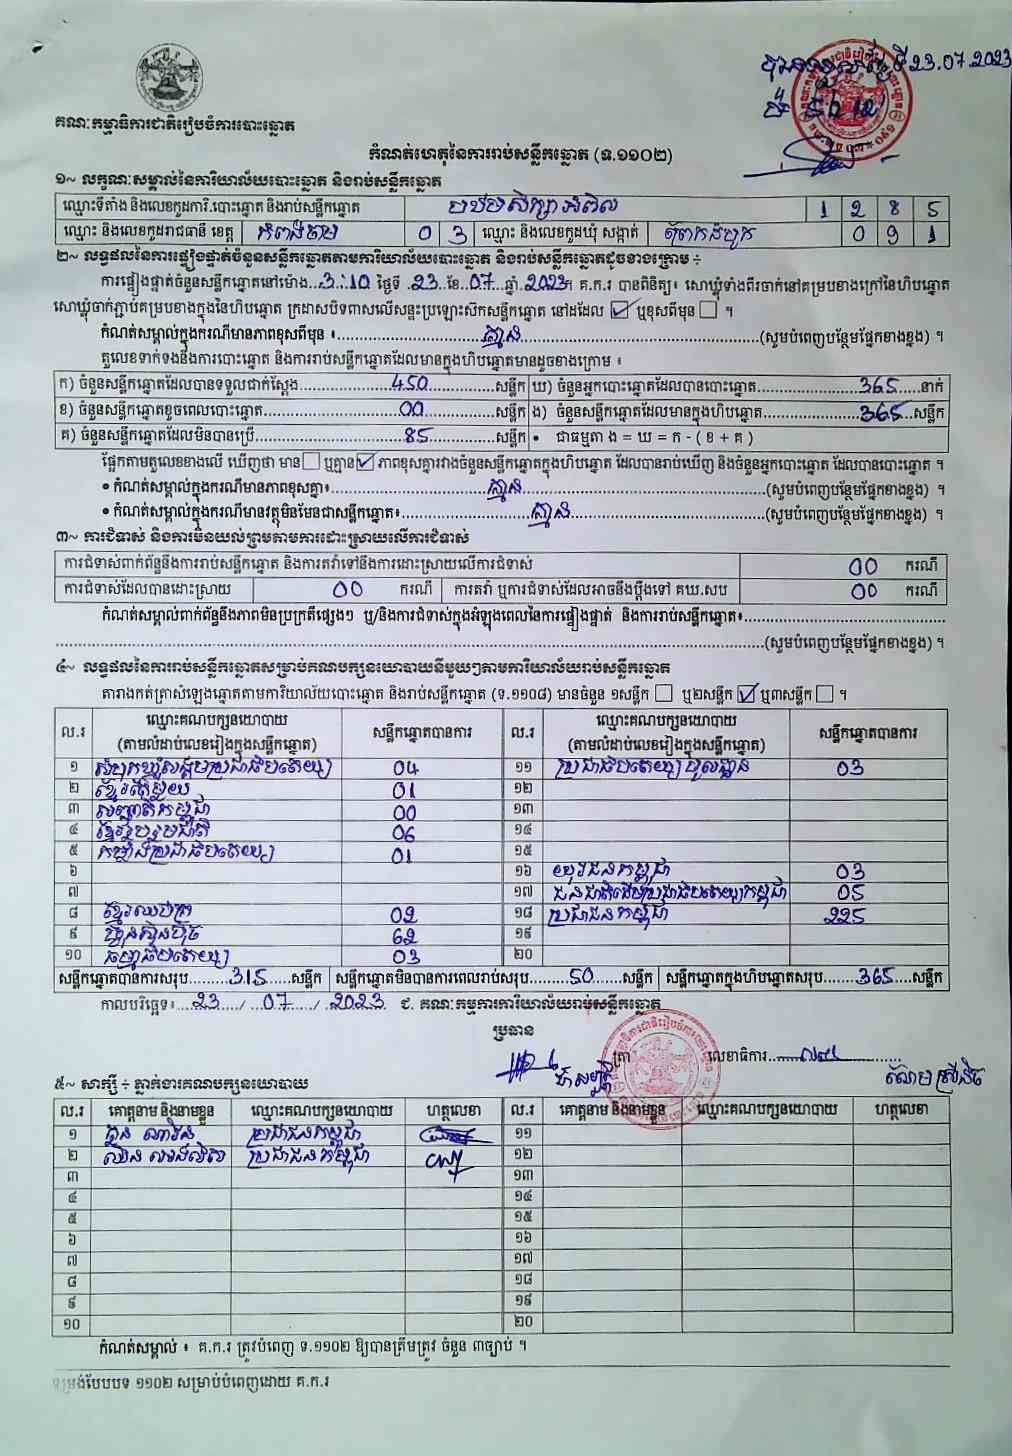 ថ្ងៃទី 23.07.2023
គណៈកម្មាធិការជាតិរៀបចំការបោះឆ្នោត
កំណត់ហេតុនៃការរាប់សន្លឹកឆ្នោត (ទ.១១០២)
១~ លក្ខណៈសម្គាល់នៃការិយាល័យបោះឆ្នោត និងរាប់សន្លឹកឆ្នោត
ឈ្មោះទីតាំង និងលេខកូដការិ.បោះឆ្នោត និងរាប់សន្លឹកឆ្នោត បឋមសិក្សា អំពិល 1 2 8 5
ឈ្មោះ និងលេខកូដរាជធានី ខេត្ត កំពង់ចាម 0 3 ឈ្មោះ និងលេខកូដឃុំ សង្កាត់ 0 9 1
២~ លទ្ធផលនៃការផ្ទៀងផ្ទាត់ចំនួនសន្លឹកឆ្នោតតាមការិយាល័យបោះឆ្នោត និងរាប់សន្លឹកឆ្នោតដូចខាងក្រោម ÷
ការផ្ទៀងផ្ទាត់ចំនួនសន្លឹកឆ្នោតនៅម៉ោង 3:10 ថ្ងៃទី 23 ខែ 07 ឆ្នាំ 2023។ គ.ក.រ បានពិនិត្យ៖ សោឃ្លុំទាំងពីរចាក់នៅគម្របខាងក្រៅនៃហិបឆ្នោត
សោឃ្លុំចាក់ភ្ជាប់គម្របខាងក្នុងនៃហិបឆ្នោត ក្រដាសបិទពាសលើសន្ទះប្រឡោះសឹកសន្លឹកឆ្នោត នៅដដែល ☑ ឬខុសពីមុន ☐ ។
កំណត់សម្គាល់ក្នុងករណីមានភាពខុសពីមុន ៖ គ្មាន (សូមបំពេញបន្ថែមផ្នែកខាងខ្នង) ។
តួលេខទាក់ទងនឹងការបោះឆ្នោត និងការរាប់សន្លឹកឆ្នោតដែលមានក្នុងហិបឆ្នោតមានដូចខាងក្រោម ៖
ក) ចំនួនសន្លឹកឆ្នោតដែលបានទទួលជាក់ស្តែង 450 សន្លឹក ឃ) ចំនួនអ្នកបោះឆ្នោតដែលបានបោះឆ្នោត 365 នាក់
ខ) ចំនួនសន្លឹកឆ្នោតខូចពេលបោះឆ្នោត 00 សន្លឹក ង) ចំនួនសន្លឹកឆ្នោតដែលមានក្នុងហិបឆ្នោត 365 សន្លឹក
គ) ចំនួនសន្លឹកឆ្នោតដែលមិនបានប្រើ 85 សន្លឹក • ជាធម្មតា ង = ឃ = ក - ( ខ + គ )
ផ្អែកតាមតួលេខខាងលើ ឃើញថា មាន ☐ ឬគ្មាន ☑ ភាពខុសគ្នារវាងចំនួនសន្លឹកឆ្នោតក្នុងហិបឆ្នោត ដែលបានរាប់ឃើញ និងចំនួនអ្នកបោះឆ្នោត ដែលបានបោះឆ្នោត ។
• កំណត់សម្គាល់ក្នុងករណីមានភាពខុសគ្នា៖ គ្មាន (សូមបំពេញបន្ថែមផ្នែកខាងខ្នង) ។
• កំណត់សម្គាល់ក្នុងករណីមានវត្ថុមិនមែនជាសន្លឹកឆ្នោត៖ គ្មាន (សូមបំពេញបន្ថែមផ្នែកខាងខ្នង) ។
៣~ ការជំទាស់ និងការមិនយល់ព្រមតាមការដោះស្រាយលើការជំទាស់
ការជំទាស់ពាក់ព័ន្ធនឹងការរាប់សន្លឹកឆ្នោត និងការតវ៉ាទៅនឹងការដោះស្រាយលើការជំទាស់ 00 ករណី
ការជំទាស់ដែលបានដោះស្រាយ 00 ករណី ការតវ៉ា ឬការជំទាស់ដែលអាចនឹងប្តឹងទៅ គឃ.សប 00 ករណី
កំណត់សម្គាល់ពាក់ព័ន្ធនឹងភាពមិនប្រក្រតីផ្សេងៗ ឬ/និងការជំទាស់ក្នុងអំឡុងពេលនៃការផ្ទៀងផ្ទាត់ និងការរាប់សន្លឹកឆ្នោត៖
(សូមបំពេញបន្ថែមផ្នែកខាងខ្នង) ។
៤~ លទ្ធផលនៃការរាប់សន្លឹកឆ្នោតសម្រាប់គណបក្សនយោបាយនីមួយៗតាមការិយាល័យរាប់សន្លឹកឆ្នោត
តារាងកត់ត្រាសំឡេងឆ្នោតតាមការិយាល័យបោះឆ្នោត និងរាប់សន្លឹកឆ្នោត (ទ.១១០៨) មានចំនួន ១សន្លឹក ☐ ឬ២សន្លឹក ☑ ឬ៣សន្លឹក ☐ ។
ល.រ ឈ្មោះគណបក្សនយោបាយ (តាមលំដាប់លេខរៀងក្នុងសន្លឹកឆ្នោត) សន្លឹកឆ្នោតបានការ ល.រ ឈ្មោះគណបក្សនយោបាយ (តាមលំដាប់លេខរៀងក្នុងសន្លឹកឆ្នោត) សន្លឹកឆ្នោតបានការ
១ សំបុកឃ្មុំសង្គមប្រជាធិបតេយ្យ 04 ១១ ប្រជាធិបតេយ្យមូលដ្ឋាន 03
២ ខ្មែរតែមួយ 01 ១២
៣ សញ្ជាតិកម្ពុជា 00 ១៣
៤ ខ្មែររួបរួមជាតិ 06 ១៤
៥ កម្លាំងប្រជាធិបតេយ្យ 01 ១៥
៦ ១៦ យុវជនកម្ពុជា 03
៧ ១៧ ជនជាតិដើមប្រជាធិបតេយ្យកម្ពុជា 05
៨ ខ្មែរឈប់ក្រ 02 ១៨ ប្រជាជនកម្ពុជា 225
៩ ហ៊្វុនស៊ិនប៉ិច 62 ១៩
១០ ធម្មាធិបតេយ្យ 03 ២០
សន្លឹកឆ្នោតបានការសរុប 315 សន្លឹក សន្លឹកឆ្នោតមិនបានការពេលរាប់សរុប 50 សន្លឹក សន្លឹកឆ្នោតក្នុងហិបឆ្នោតសរុប 365 សន្លឹក
កាលបរិច្ឆេទ៖ 23 / 07 / 2023 ជ. គណៈកម្មការការិយាល័យរាប់សន្លឹកឆ្នោត
ប្រធាន
ត្រា លេខាធិការ
៥~ សាក្សី ÷ ភ្នាក់ងារគណបក្សនយោបាយ
ល.រ គោត្តនាម និងនាមខ្លួន ឈ្មោះគណបក្សនយោបាយ ហត្ថលេខា ល.រ គោត្តនាម និងនាមខ្លួន ឈ្មោះគណបក្សនយោបាយ ហត្ថលេខា
១ ប្រជាជនកម្ពុជា ១១
២ ប្រជាជនកម្ពុជា ១២
៣ ១៣
៤ ១៤
៥ ១៥
៦ ១៦
៧ ១៧
៨ ១៨
៩ ១៩
១០ ២០
កំណត់សម្គាល់ ៖ គ.ក.រ ត្រូវបំពេញ ទ.១១០២ ឱ្យបានត្រឹមត្រូវ ចំនួន ៣ច្បាប់ ។
ទម្រង់បែបបទ ១១០២ សម្រាប់បំពេញដោយ គ.ក.រ